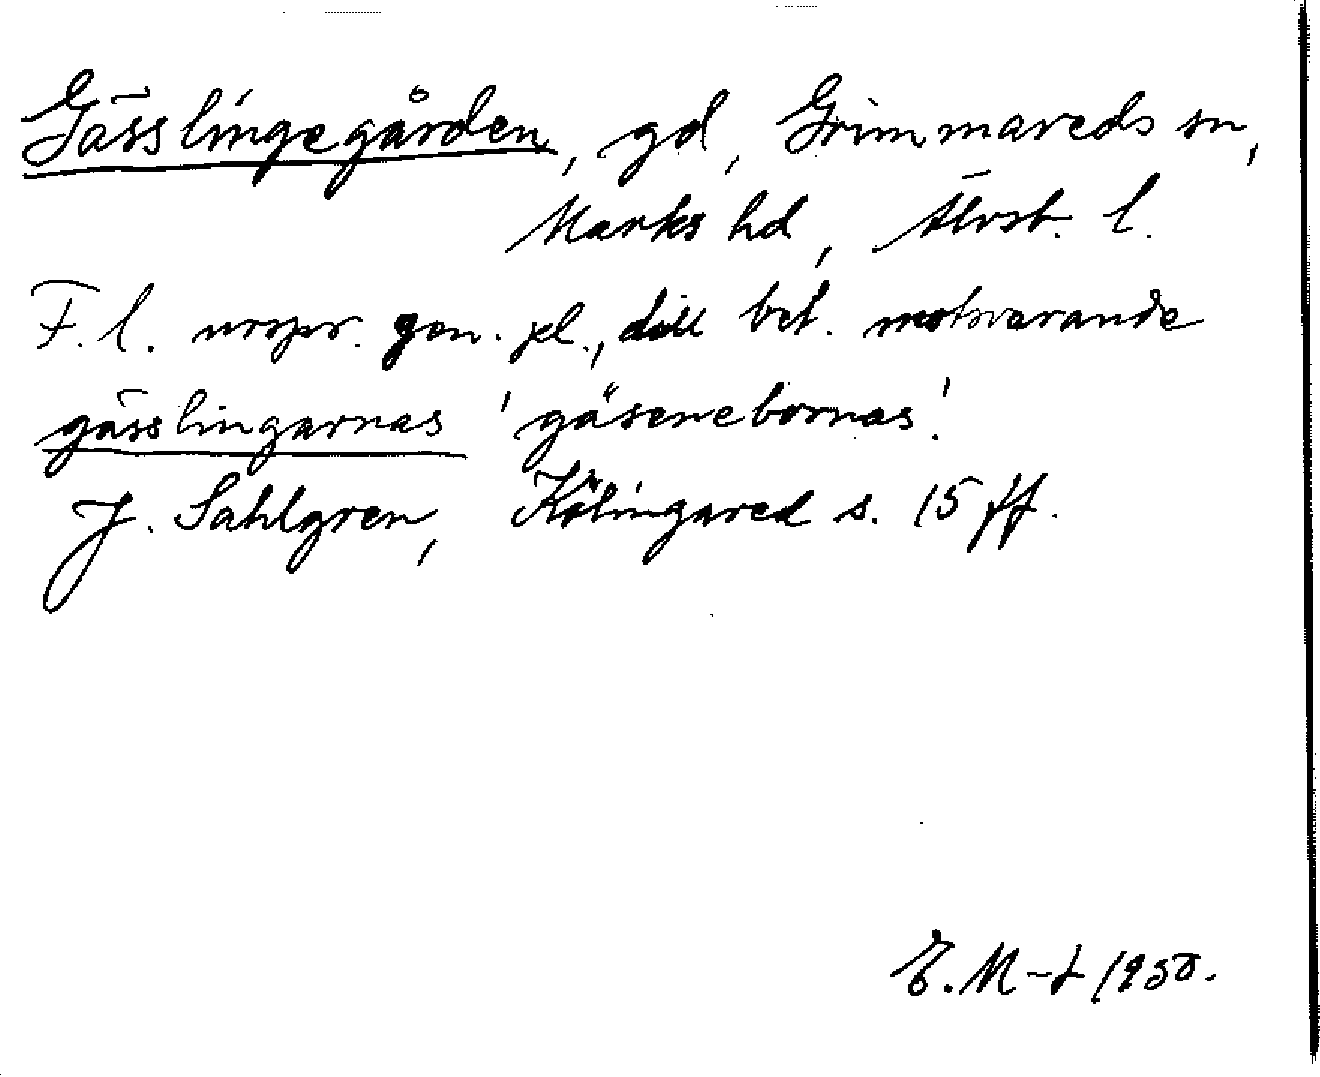 Gässlingegården, gd, Grimmareds sn,
Marks hd, Älvsb. l.
F. l. urspr. gen. pl., till bet. motsvarande
gässlingarnas 'gäsenebornas'.
J. Sahlgren, Kölingared s. 15 ff.
E. M-t 1950.